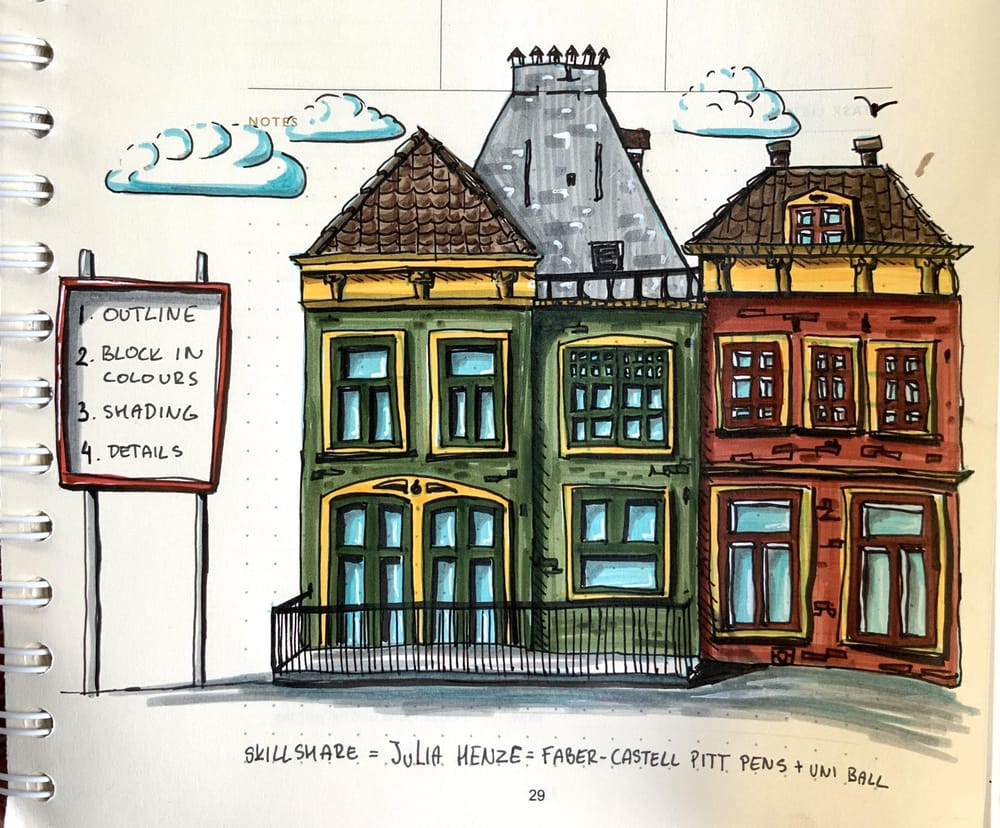 NOTES
1. OUTLINE
2. BLOCK IN
COLOURS
3. SHADING
4. DETAILS
SKILLSHARE = JULIA HENZE = FABER-CASTELL PITT PENS + UNI BALL
29